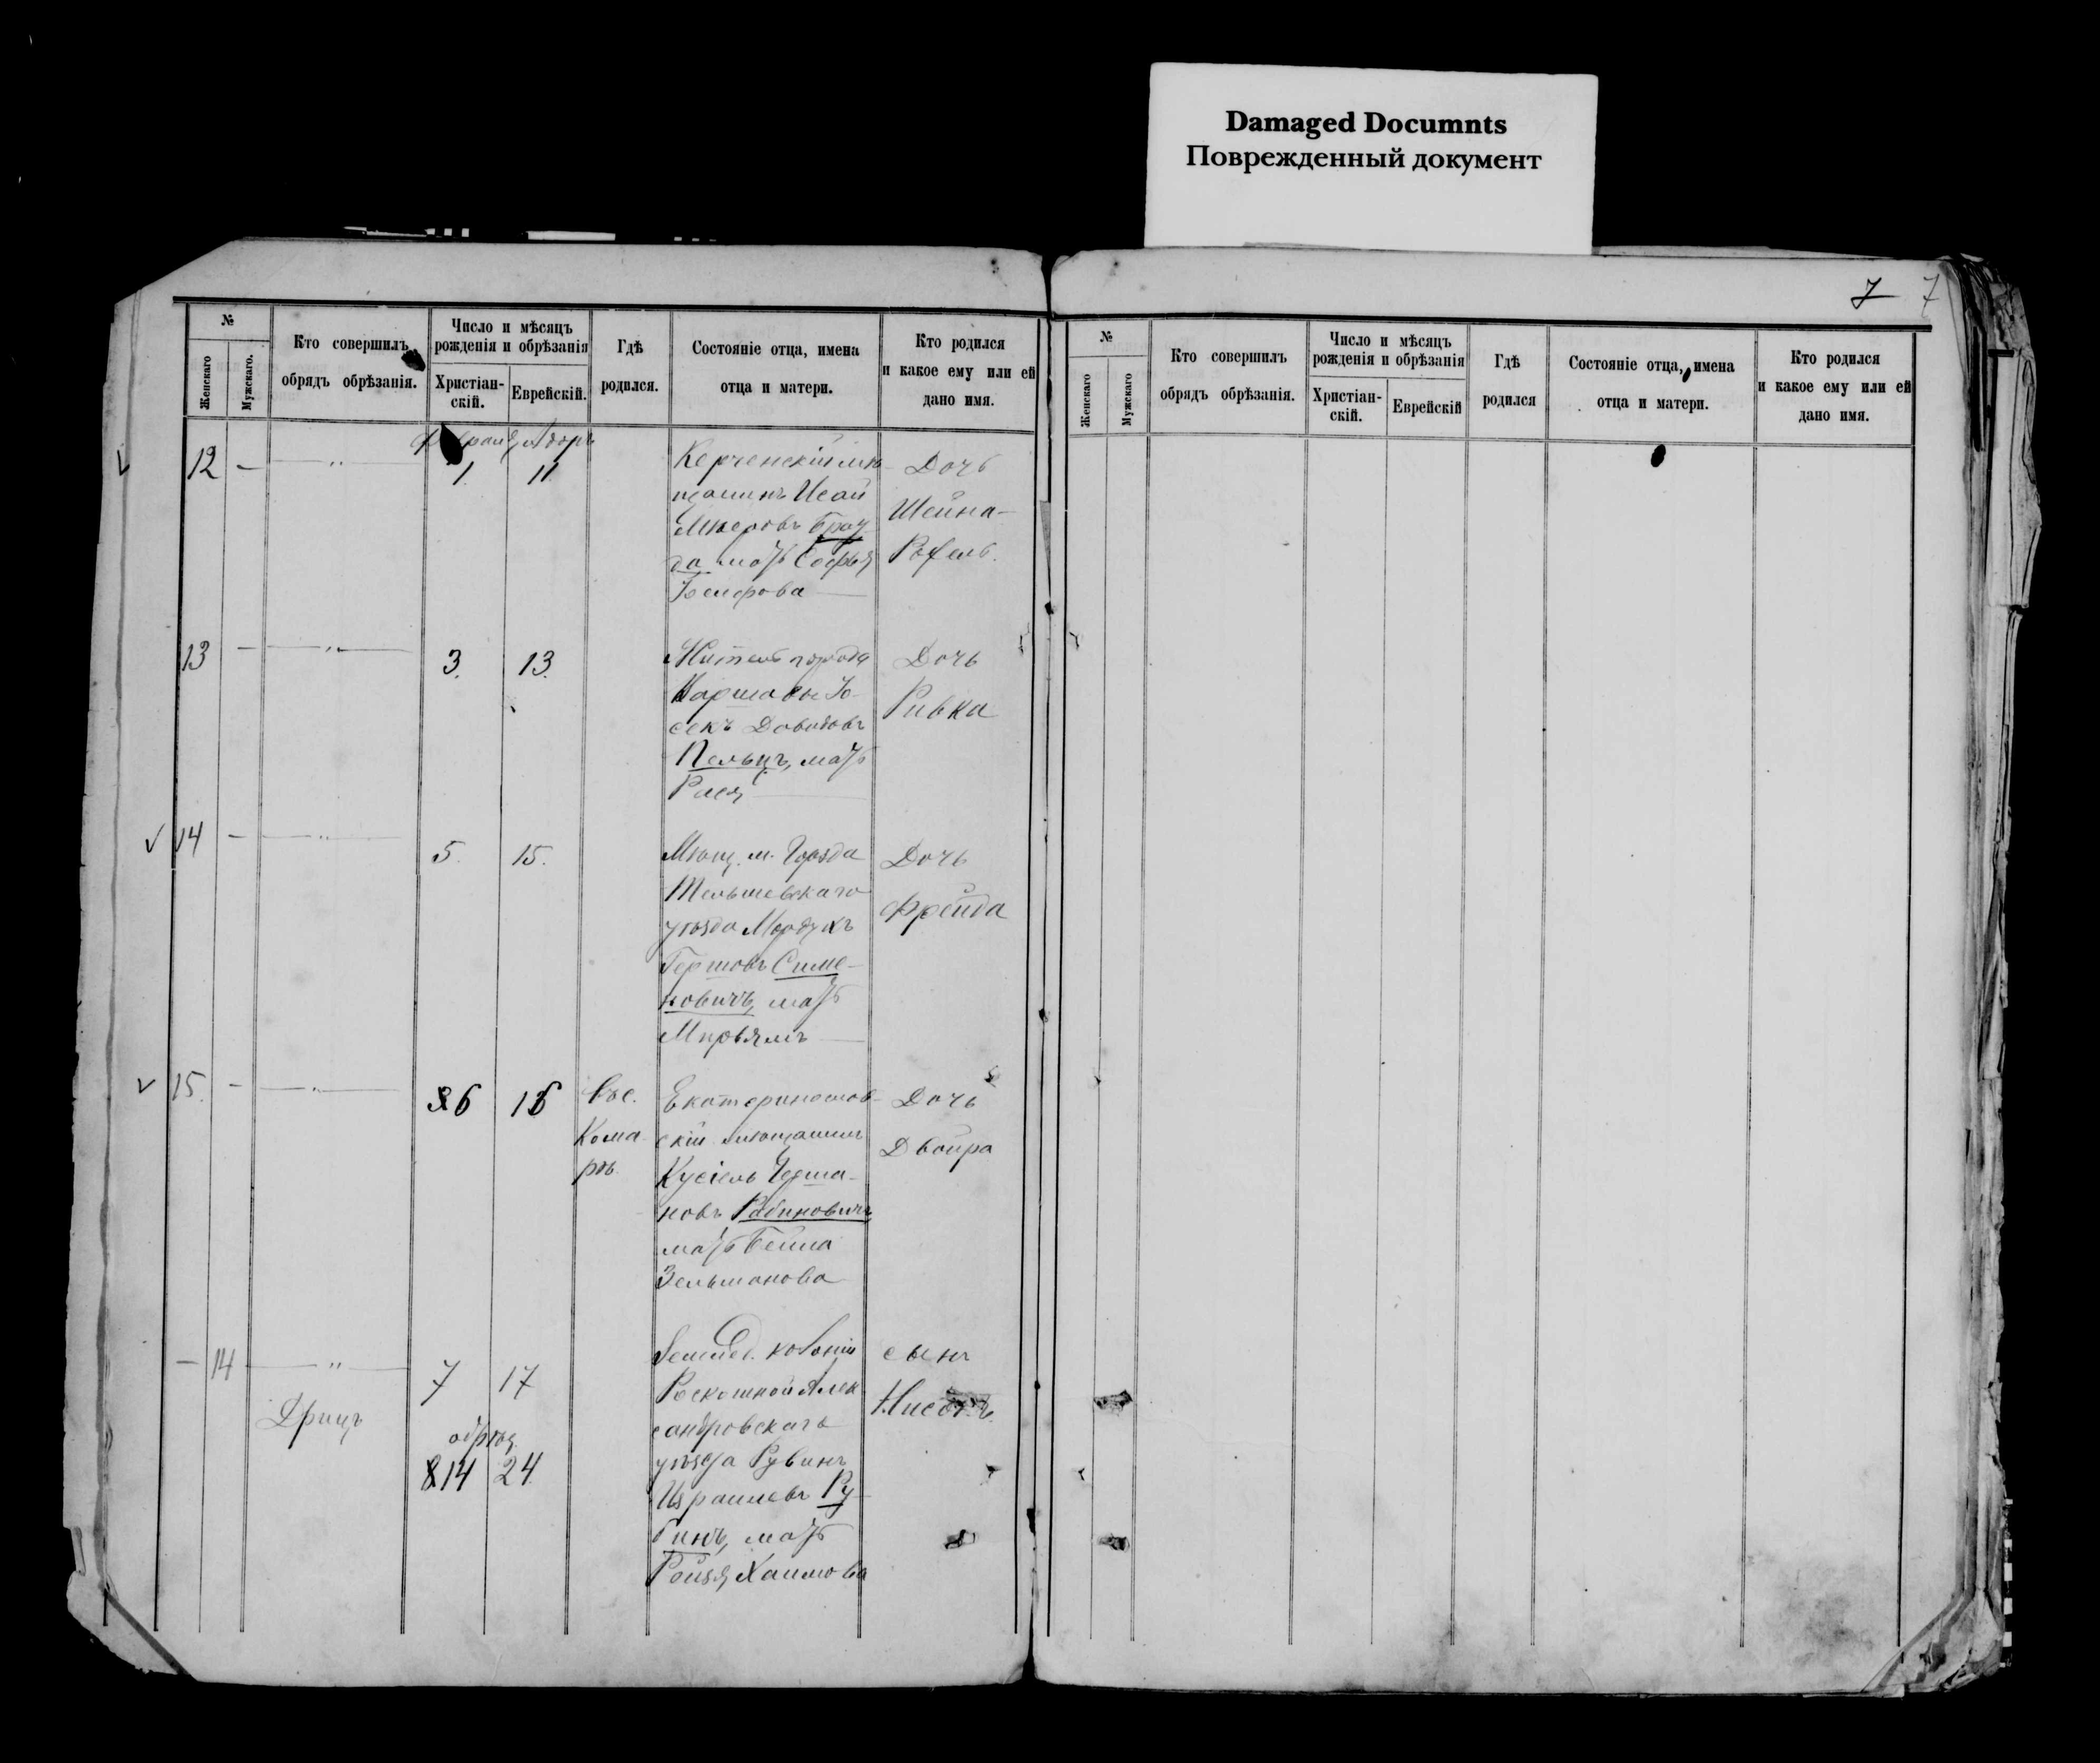 Damaged Documnts
Поврежденный документ
7 7
№
Женскаго
Мужскаго.
Кто совершилъ
обрядъ обрѣзанія.
Число и мѣсяцъ
рожденія и обрѣзанія
Христіан-
скій.
Еврейскій.
Гдѣ
родился.
Состояніе отца, имена
отца и матери.
Кто родился
и какое ему или ей
дано имя.
12 — — " —
1. 11
Керченскій мѣ-
щанинъ Исай
Мееровъ Брау
да мать Софья
Дочь
Шейна-
Рохель.
13 — — " —
3. 13.
Житель города
Варшавы Іо-
секъ Довидовъ
Пельцъ, мать
Дочь
Ривка
14 — — " —
5. 15.
Мѣщ. м. Горзда
Тельшевскаго
уѣзда Мордухъ
Гершовъ Симе-
новичъ, мать
Мирьямъ
Дочь
Фрейда
15. — — " —
6 16
Въ с.
Кома
рѣ.
Екатеринослав-
скій мѣщанинъ
Кусіель Герша-
новъ Рабиновичъ
мать Бейла
Зельманова
Дочь
Двойра
— 14 — " —
Дрицъ
7 17
обрѣз.
14 24
Землед. колоніи
Роскошной Алек
сандровскаго
уѣзда Рувинъ
Израилевъ Ру-
бинъ, мать
Рейзя Хаимова
сынъ
№
Женскаго
Мужскаго
Кто совершилъ
обрядъ обрѣзанія.
Число и мѣсяцъ
рожденія и обрѣзанія
Христіан-
скій.
Еврейскій
Гдѣ
родился
Состояніе отца, имена
отца и матери.
Кто родился
и какое ему или ей
дано имя.